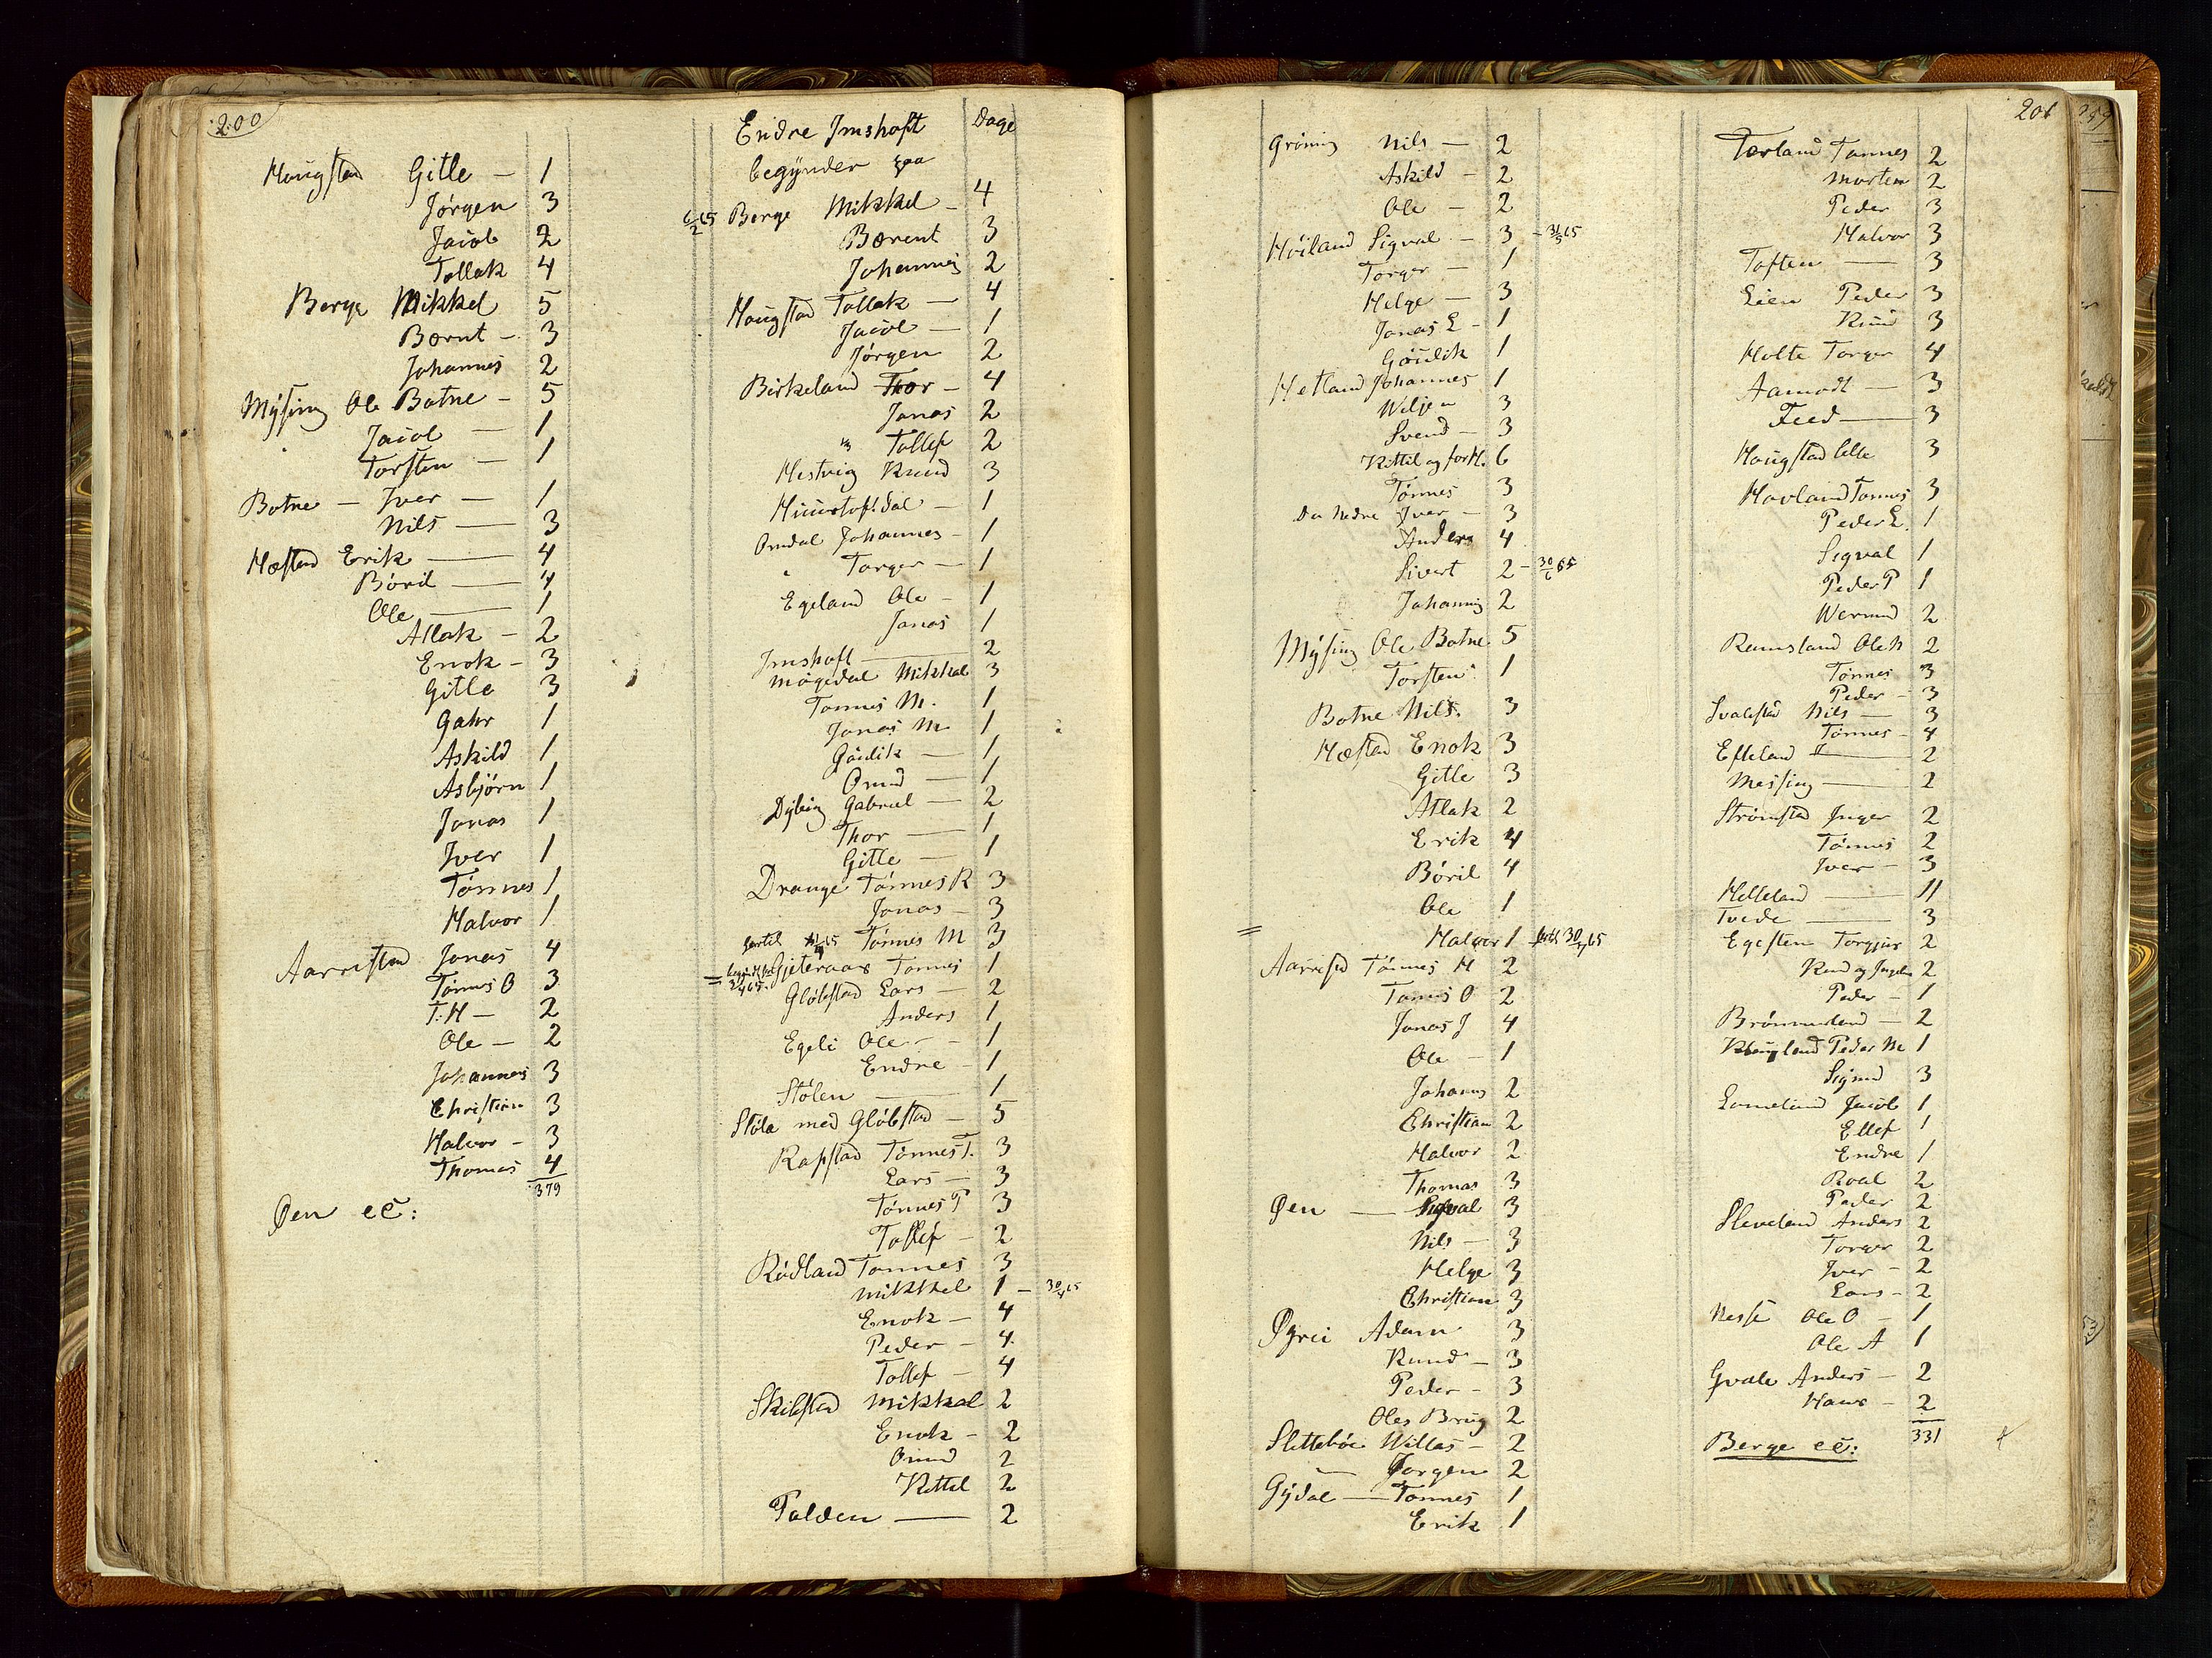 200
Haugstad Gitle – 1
Jørgen 3
Jacob 2
Tollak 4
Berge Mikkel 5
Bærnt – 3
Johannes 2
Mÿsing Ole Botne – 5
Jacob – 1
Torsten – 1
Botne – Iver – 1
Nils – 3
Hæstad Erik – 4
Bóril – 4
Ole – 1
Atlak – 2
Enok – 3
Gitle 3
Gahr 1
Askild 1
Asbjørn 1
Jonas 1
Iver 1
Tónnes 1
Halvor 1
Aarrestad Jonas 4
Tónnes O 3
T: H – 2
Ole – 2
Johannes 3
Christian 3
Halvor – 3
Thomas 4
379
Øen ec:
Endre Imshaft Dage
begÿnder paa
6/2 65 Berge Mikkel – 4
Bærent 3
Johannes 2
Haugstad Tollak – 4
Jacob – 1
Jórgen 2
Birkeland Thor – 4
Jonas 2
" Tollef 2
Hestvig Knud 3
1
Omdal Johannes – 1
" Torger – 1
Egeland Ole – 1
Jonas 1
Imshaft – 2
Mogedal Mikkal 3
Tonnes M. 1
Jonas M 1
Góudik – 1
Omund – 1
Dÿbing Gabriel – 2
Thor – 1
Gitle – 1
Drange Tónnes R 3
Jonas – 3
Tónnes M 3
Gjeteraas Tonnes 1
Glóbstad Lars – 2
Anders 1
Egeli Ole – 1
Endre – 1
Stólen – 1
Stóle med Glóbstad – 5
Rapstad Tónnes T. 3
Lars – 3
Tónnes P 3
Tollef – 2
Ródland Tonnes 3
Mikkel 1 – 30/4 65
Enok – 4
Peder – 4
Tollef – 4
Skibstad Mikkal 2
Enok – 2
Omund 2
Kittil 2
Tolden – 2
201
Gróning Nils – 2
Askild – 2
Ole – 2
Hóiland Sigval – 3 – 31/5 65
Torger – 1
Helge – 3
Jonas L – 1
Góudik 1
Hetland Johannes 1
Wiljen 3
Svend – 3
Kittil og for H. 6
Tónnes 3
Do Nedre Iver – 3
Anders 4
Sivert 2 – 30/6 65
Johannes 2
Mÿsing Ole Botne 5
Torsten 1
Botne Nils 3
Hæstad Enok 3
Gitle 3
Atlak 2
Erik 4
Bóril 4
Ole 1
Halvor 1 30/7 65
Aarrestad Tónnes H 2
Tonnes O 2
Jonas J 4
Ole – 1
Johannes 2
Christian 2
Halvor 2
Thomas 3
Øen – Sigval 3
Nils – 3
Helge 3
Christian 3
Øgrei Adam 3
Knud – 3
Peder – 3
Oles Brug 2
Slettebóe Willas – 2
– Jorgen 2
Gÿdal – Tonnes 1
Erik 1
Terland Tonnes 2
Morten 2
Peder 3
Halvor 3
Toften – 3
Lien Peder 3
Knud 3
Holte Torger 4
Aamodt – 3
Feed – 3
Haugstad lille 3
Hovland Tonnes 3
Peder L. 1
Sigval 1
Peder P 1
Wermund 2
Ramsland Ole N 2
Tónnes 3
Peder – 3
Svalestad Nils – 3
Tónnes – 4
Efteland – 2
Messing – 2
Strómstad Inger 2
Tónnes 2
Iver – 3
Helleland – 11
Tvede – 3
Egesten Torgjus 2
2
Peder – 1
Brónneland – 2
Peder M 1
Sigurd 3
Lomeland Jacob 1
Ellef 1
Endre 1
Roal 2
Peder 2
Sleveland Anders 2
Torger 2
Iver – 2
Lars – 2
Nesse Ole O – 1
Ole A 1
Gvale Anders – 2
Hans – 2
331
Berge ec: